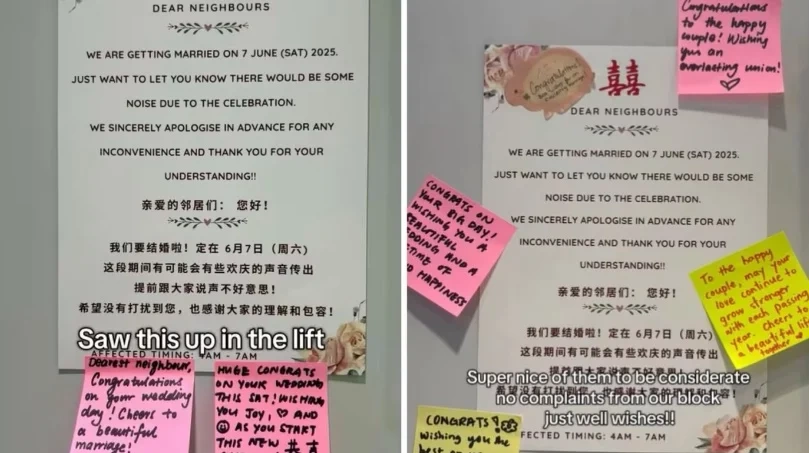 DEAR NEIGHBOURS
WE ARE GETTING MARRIED ON 7 JUNE (SAT) 2025.
JUST WANT TO LET YOU KNOW THERE WOULD BE SOME
NOISE DUE TO THE CELEBRATION.
WE SINCERELY APOLOGISE IN ADVANCE FOR ANY
INCONVENIENCE AND THANK YOU FOR YOUR
UNDERSTANDING!!
亲爱的邻居们： 您好！
我们要结婚啦！定在 6月7日（周六）
这段期间有可能会有些欢庆的声音传出
提前跟大家说声不好意思！
希望没有打扰到您，也感谢大家的理解和包容！
Saw this up in the lift
AFFECTED TIMING: 4AM - 7AM
Dearest neighbour,
Congratulations
on your wedding
day! Cheers to
a beautiful
marriage!
HUGE CONGRATS
ON YOUR WEDDING
THIS SAT! WISHING
YOU JOY, ♡ AND
☺ AS YOU START
THIS NEW
Congratulations
to the happy
couple! Wishing
you an
everlasting union!
♡
Congratulations!
囍
DEAR NEIGHBOURS
WE ARE GETTING MARRIED ON 7 JUNE (SAT) 2025.
JUST WANT TO LET YOU KNOW THERE WOULD BE SOME
NOISE DUE TO THE CELEBRATION.
WE SINCERELY APOLOGISE IN ADVANCE FOR ANY
INCONVENIENCE AND THANK YOU FOR YOUR
UNDERSTANDING!!
亲爱的邻居们： 您好！
我们要结婚啦！定在 6月7日（周六）
这段期间有可能会有些欢庆的声音传出
提前跟大家说声不好意思！
希望没有打扰到您，也感谢大家的理解和包容！
FECTED TIMING: 4AM - 7AM
CONGRATS ON
YOUR BIG DAY!
WISHING YOU A
BEAUTIFUL
WEDDING AND A
TIME OF
HAPPINESS
To the happy
couple, may your
love continue to
grow stronger
with each passing
year. Cheers to
a beautiful life
together
Super nice of them to be considerate
no complaints from our block
just well wishes!!
CONGRATS!
Wishing you the
best